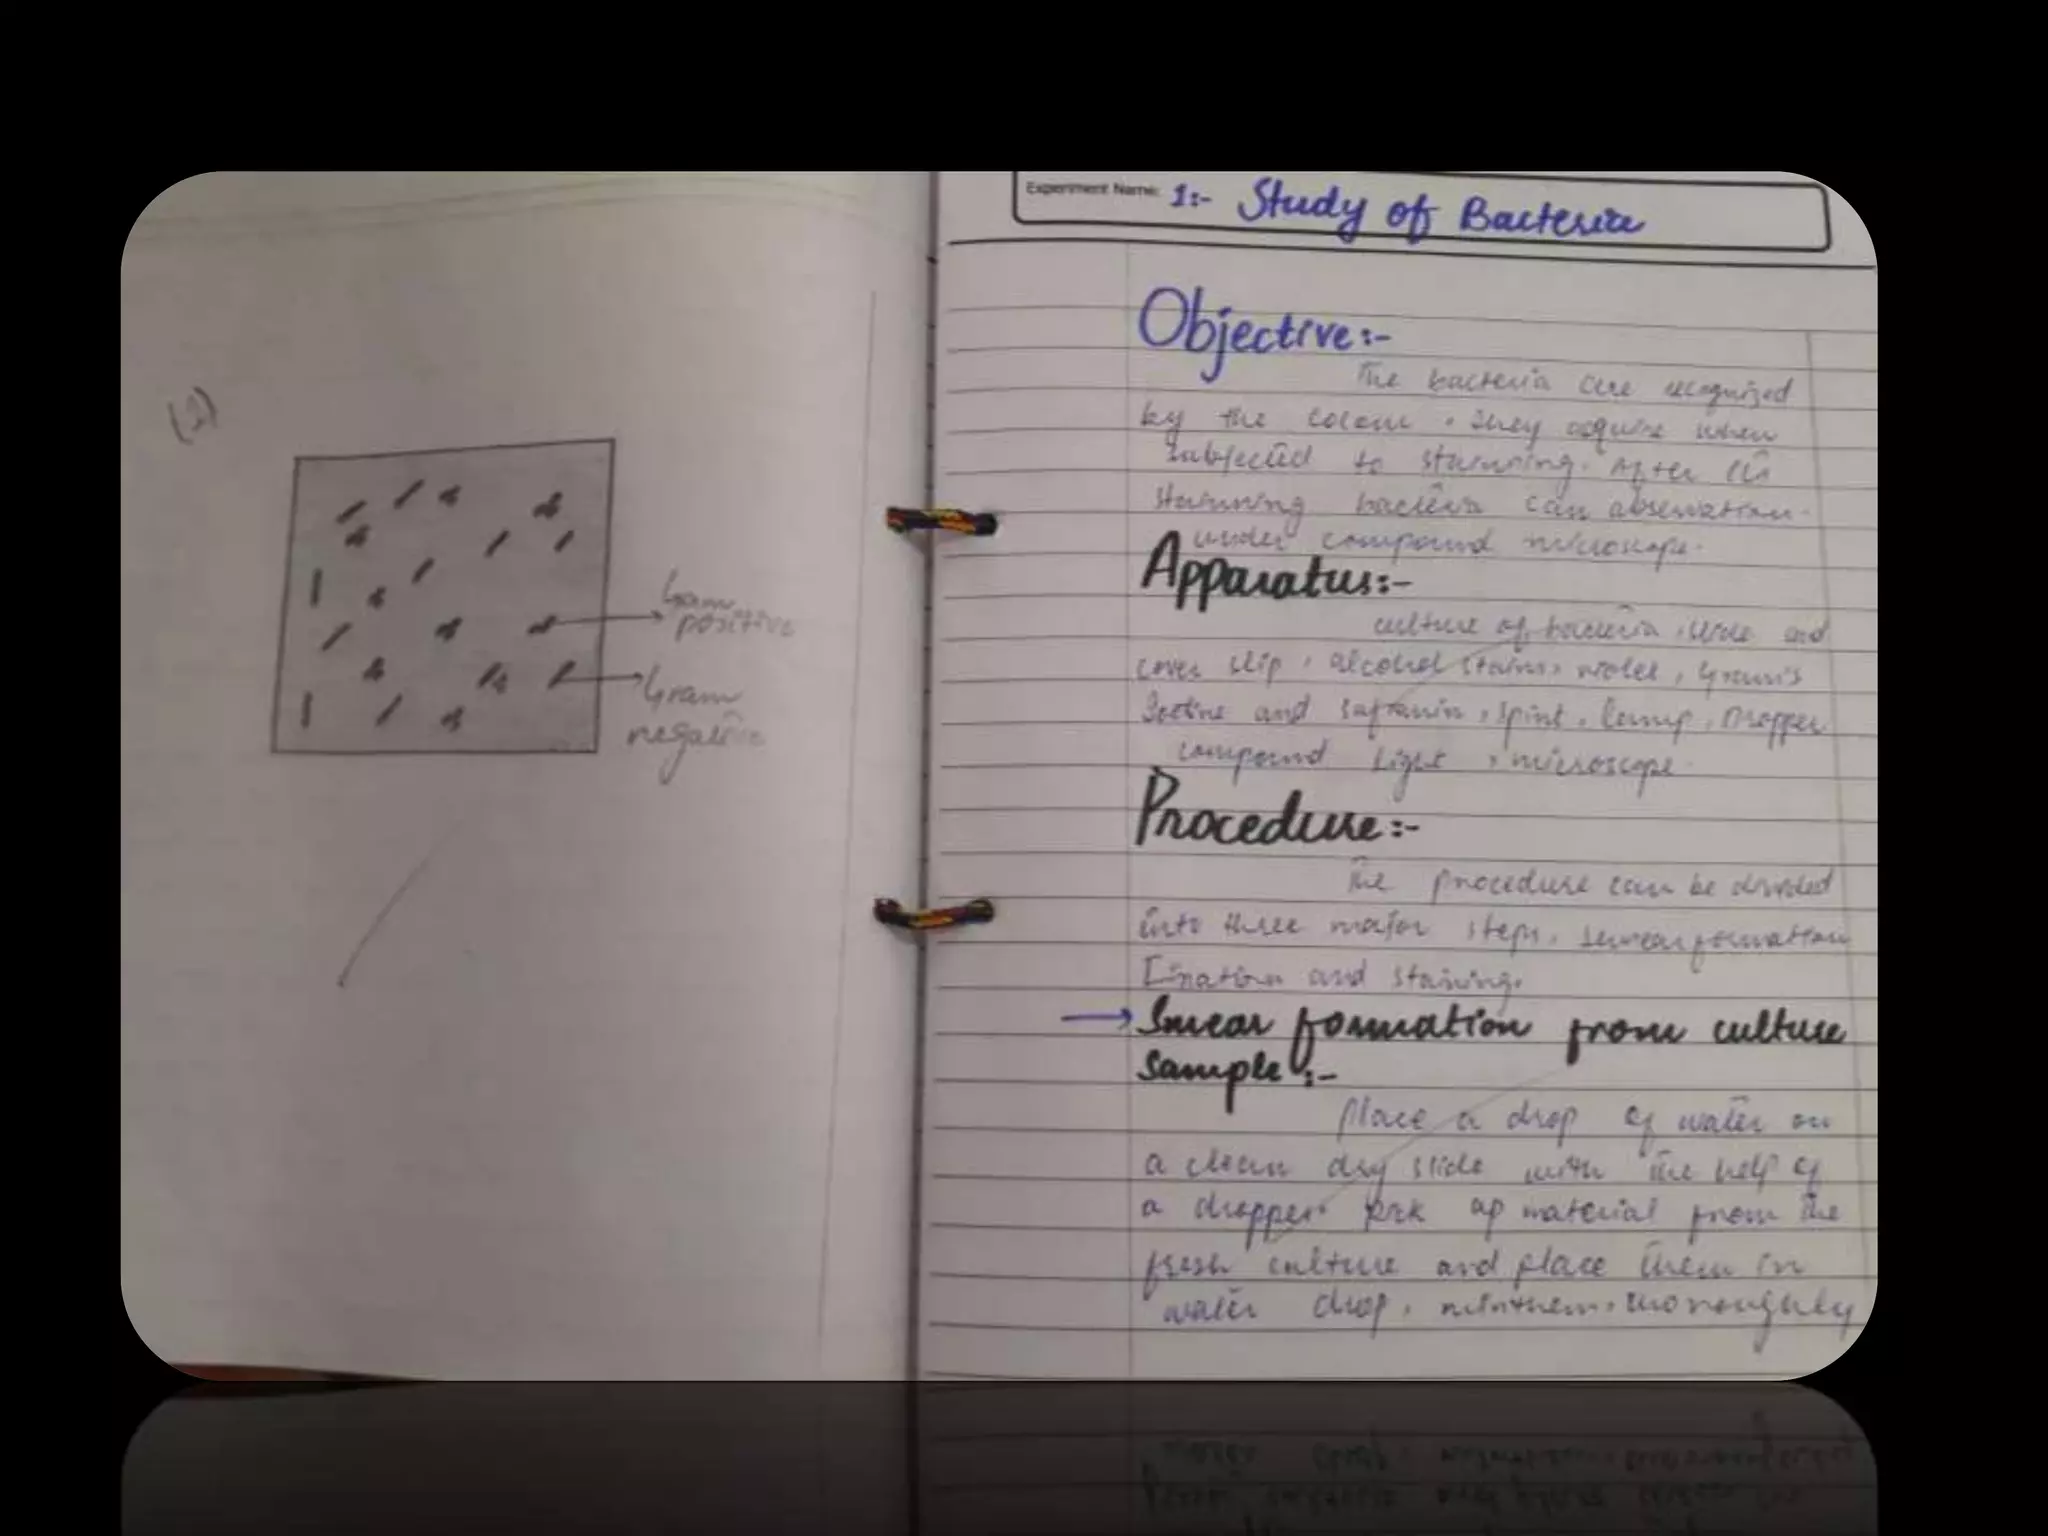 (2)
Gram
positive
Gram
negative
Experiment Name: 1:- Study of Bacteria
Objective:-
The bacteria are recognized
by the colour, they acquire when
subjected to stainning. After the
stainning bacteria can observation
under compound microscope.
Apparatus:-
culture of bacteria, slide and
cover slip, alcohol stains, violet, Gram's
Iodine and safranin, spirit, lamp, Dropper
compound light, microscope.
Procedure:-
The procedure can be divided
into three major steps, smear formation
Fixation and staining.
→ Smear formation from culture
Sample:-
Place a drop of water on
a clean dry slide with the help of
a dropper. Pick up material from the
fresh culture and place them in
water drop, thoroughly